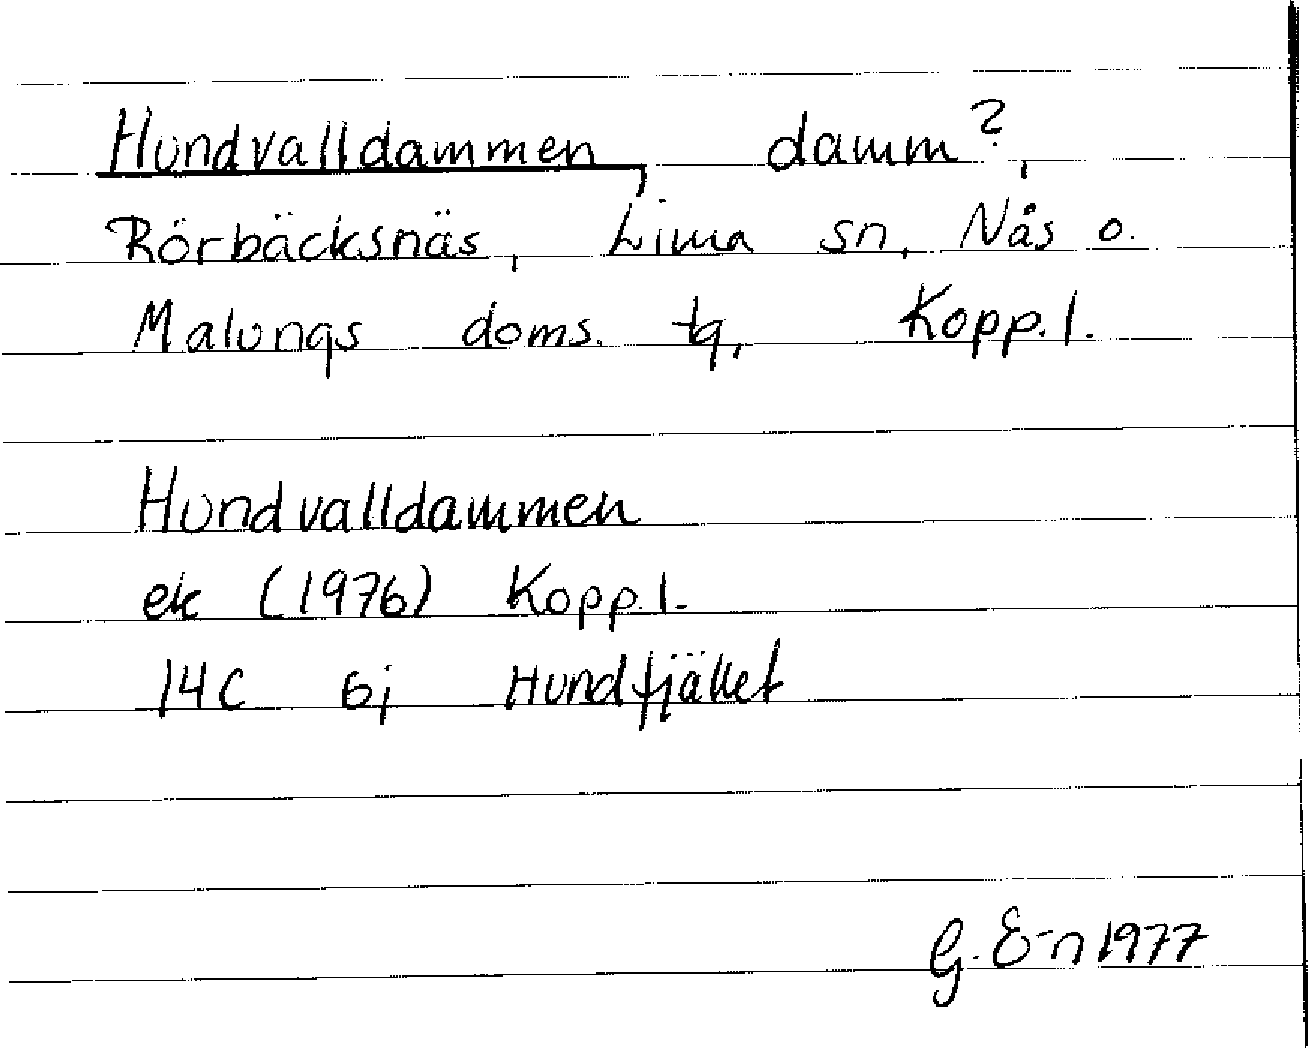 Hundvalldammen, damm?,
Rörbäcksnäs, Lima sn, Nås o.
Malungs doms. tg, Kopp. l.
Hundvalldammen
ek (1976) Kopp. l.
14C 6j Hundfjället
G. E-n 1977